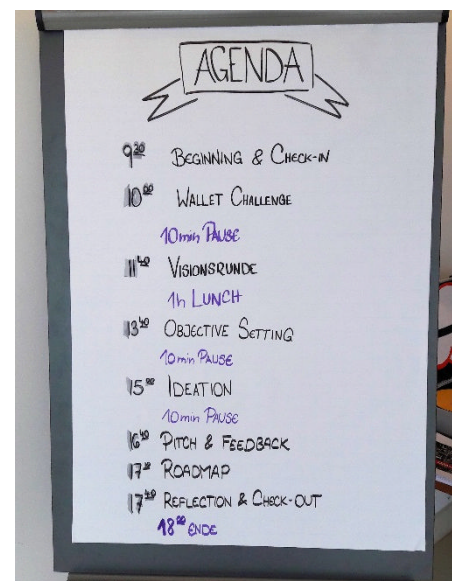 AGENDA
9³⁰ BEGINNING & CHECK-IN
10⁰⁰ WALLET CHALLENGE
10min PAUSE
11⁴⁰ VISIONSRUNDE
1h LUNCH
13⁴⁰ OBJECTIVE SETTING
10min PAUSE
15⁰⁰ IDEATION
10min PAUSE
16⁴⁰ PITCH & FEEDBACK
ROADMAP
REFLECTION & CHECK-OUT
18⁰⁰ ENDE